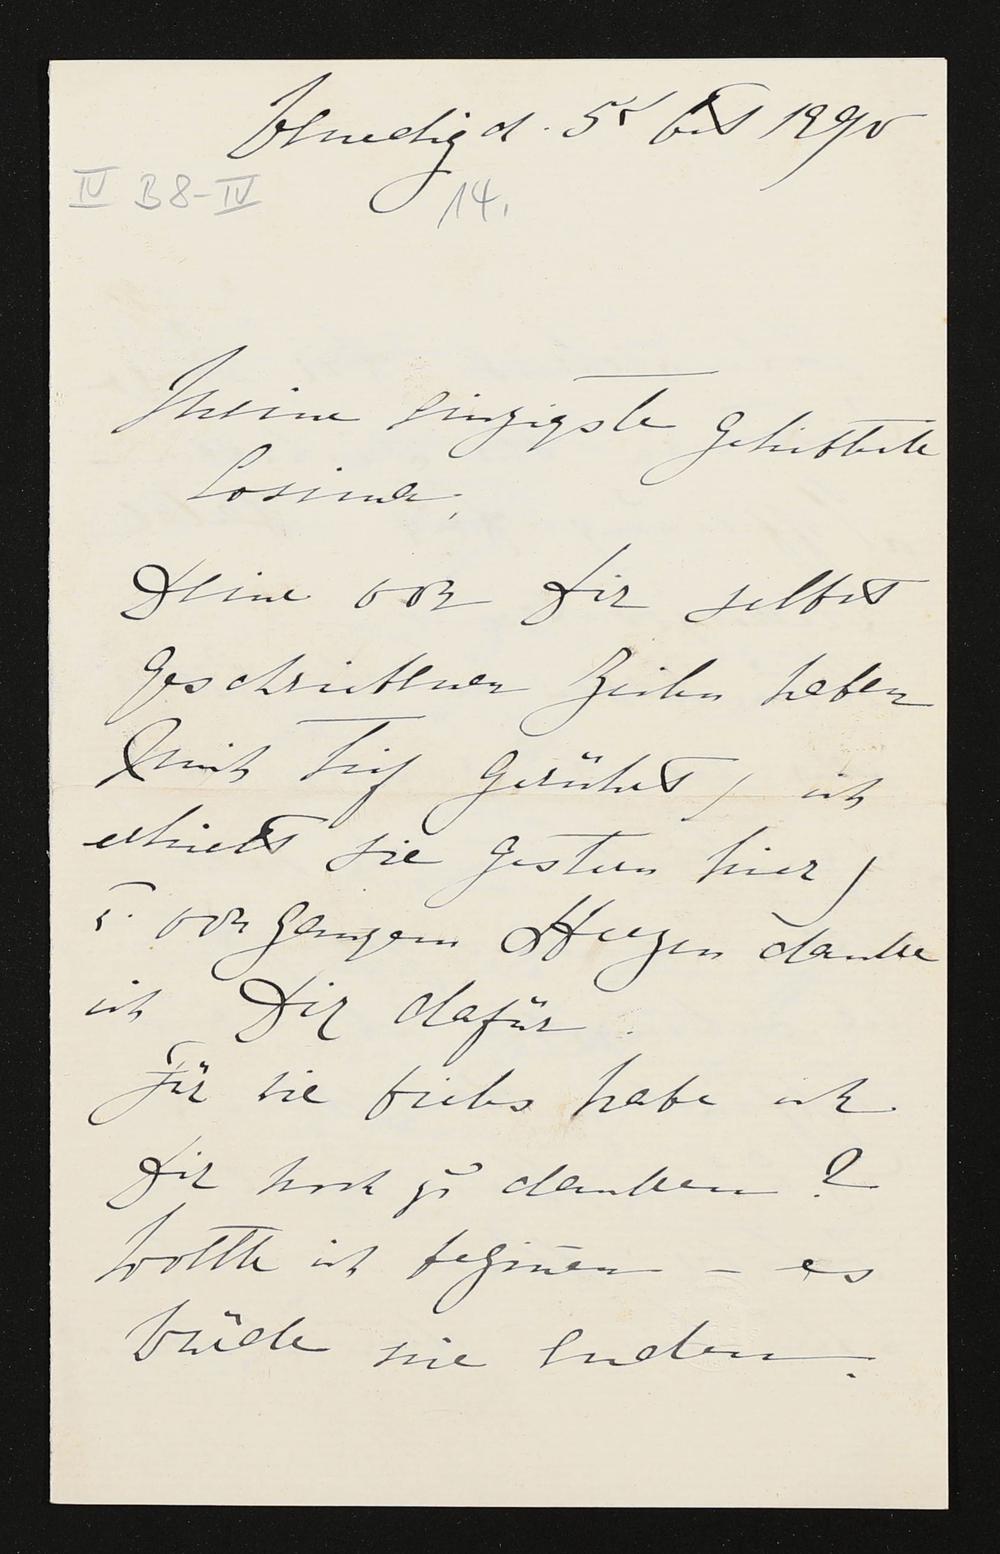 Venedig d. 5t Oct 1890
IV B8-IV 14.
Meine einzigste geliebteste
Cosima,
Deine von Dir selbst
geschriebenen Zeilen haben
mich tief gerührt / ich
erhielt sie gestern hier /
u. von ganzem Herzen danke
ich Dir dafür.
Für wie vieles habe ich
Dir noch zu danken?
Wollte ich beginnen – es
würde nie enden.